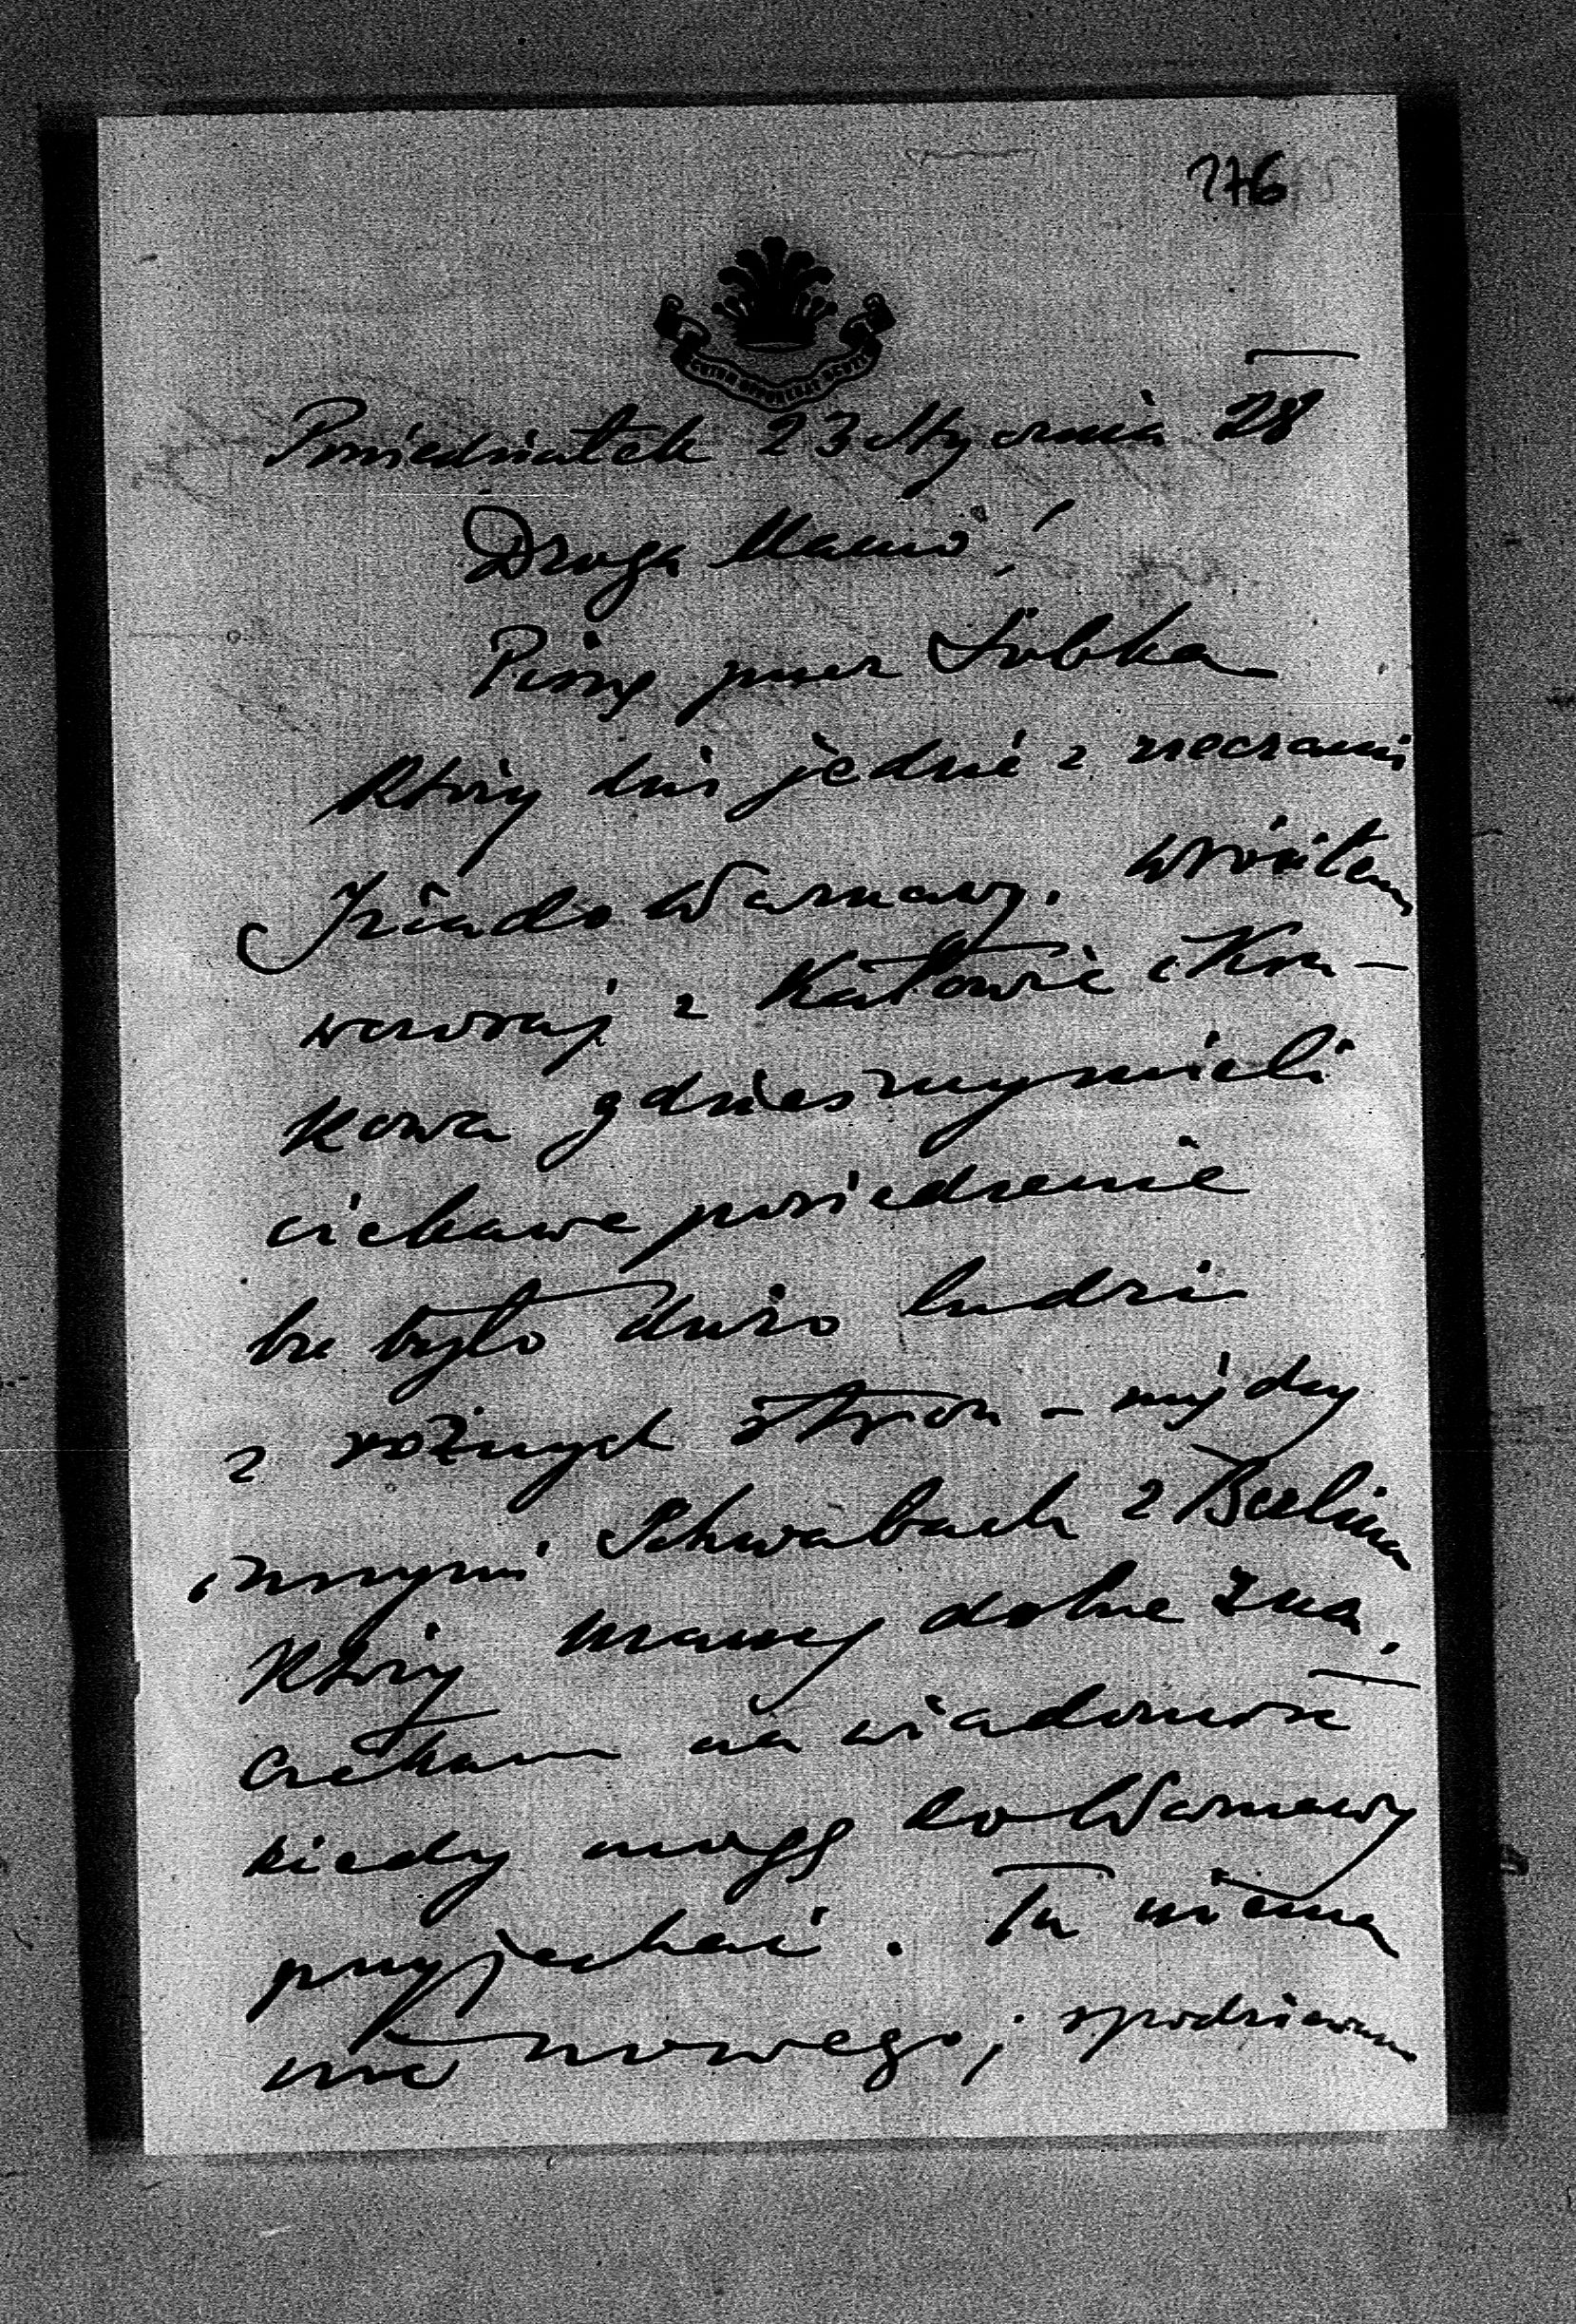 276
Poniedziałek 23 Stycznia 28
Droga Mamo!
Piszę przez Sobka
który dziś jedzie z rzeczami
Izia do Warszawy. Wróciłem
wczoraj z Katowic i Kra-
kowa gdzieśmy mieli
ciekawe posiedzenie
bo było dużo ludzi
z rożnych stron – między
innymi Schwabach z Berlina
który mamę dobrze zna.
Czekam na wiadomość
kiedy mogę do Warszawy
przyjechać. Tu niema
nic nowego; spodziewam